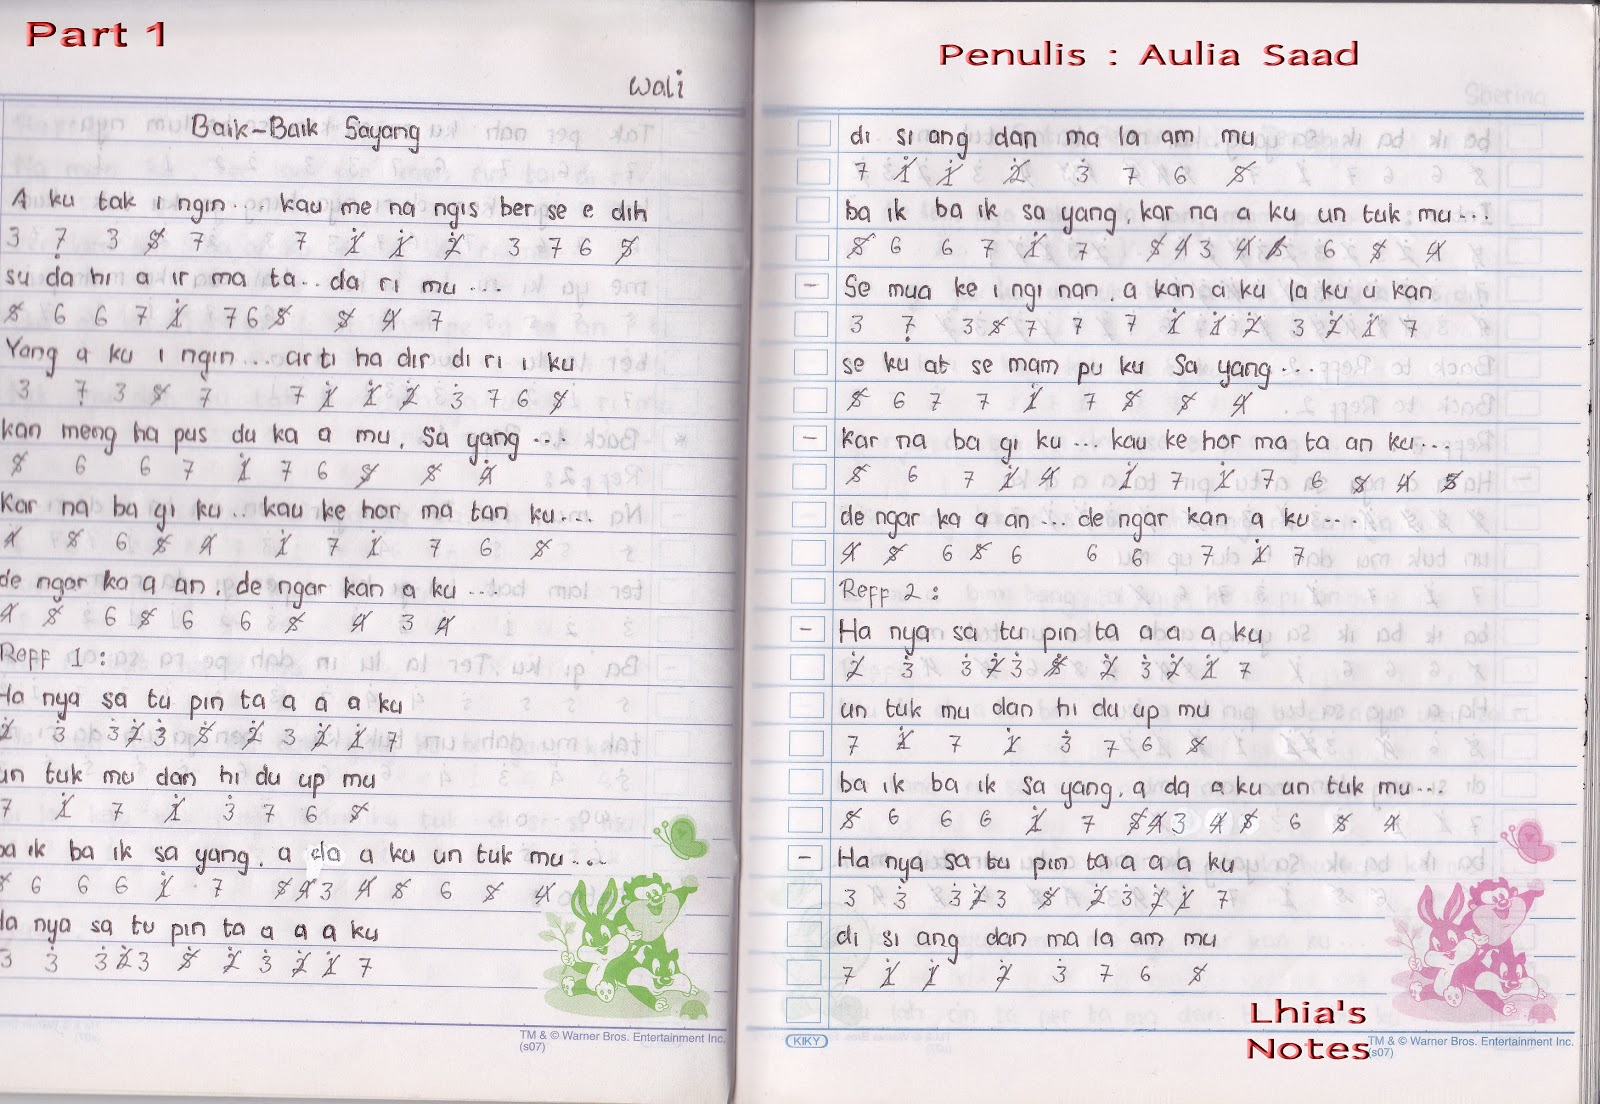 Part 1
Wali
Baik-Baik Sayang
A ku tak i ngin... kau me na ngis ber se e dih
3 7̣ 3 5̸ 7 7 1̸̇ 1̸̇ 2̸̇ 3 7 6 5̸
su da hi a ir ma ta.. da ri mu...
5̸ 6 6 7 1̸̇ 7 6 5̸ 5̸ 4̸ 7
Yang a ku i ngin... arti ha dir di ri i ku
3 7̣ 3 5̸ 7 7 1̸̇ 1̸̇ 2̸̇ 3̇ 7 6 5̸
kan meng ha pus du ka a mu, sa yang...
5̸ 6 6 7 1̸̇ 7 6 5̸ 5̸ 4̸
Kar na ba gi ku.. kau ke hor ma tan ku...
4̸ 5̸ 6 5̸ 4̸ 1̸̇ 7 1̸̇ 7 6 5̸
de ngar ka a an, de ngar kan a ku...
4̸ 5̸ 6 5̸ 6 6 5̸ 4̸ 3 4̸
Reff 1:
Ha nya sa tu pin ta a a a ku
2̸̇ 3̇ 3̇ 2̸̇ 3̇ 5̸̇ 2̸̇ 3 2̸̇ 1̸̇ 7
un tuk mu dan hi du up mu
7 1̸̇ 7 1̸̇ 3̇ 7 6 5̸
ba ik ba ik sa yang, a da a ku un tuk mu...
5̸ 6 6 6 1̸̇ 7 5̸ 4̸ 3 4̸ 5̸ 6 5̸ 4̸
Ha nya sa tu pin ta a a a ku
3 3̇ 3̇ 2̸̇ 3 5̸̇ 2̸̇ 3̇ 2̸̇ 1̸̇ 7
TM & © Warner Bros. Entertainment Inc.
(s07)
Penulis : Aulia Saad
di si ang dan ma la am mu
7 1̸̇ 1̸̇ 2̸̇ 3̇ 7 6 5̸
ba ik ba ik sa yang, kar na a ku un tuk mu...
5̸ 6 6 7 1̸̇ 7 5̸ 4̸ 3 4̸ 5̸ 6 5̸ 4̸
- Se mua ke i ngi nan, a kan a ku la ku u kan
3 7̣ 3 5̸ 7 7 7 1̸̇ 1̸̇ 2̸̇ 3 2̸̇ 1̸̇ 7
se ku at se mam pu ku sa yang...
5̸ 6 7 7 1̸̇ 7 5̸ 5̸ 4̸
- Kar na ba gi ku... kau ke hor ma ta an ku...
5̸ 6 7 1̸̇ 4̸ 1̸̇ 7 1̸̇ 7 6 5̸ 4̸ 5̸
de ngar ka a an... de ngar kan a ku...
4̸ 5̸ 6 5̸ 6 6 6 7 1̸̇ 7
Reff 2:
- Ha nya sa tu pin ta a a a ku
2̸̇ 3̇ 3̇ 2̸̇ 3̇ 5̸̇ 2̸̇ 3̇ 2̸̇ 1̸̇ 7
un tuk mu dan hi du up mu
7 1̸̇ 7 1̸̇ 3̇ 7 6 5̸
ba ik ba ik sa yang, a da a ku un tuk mu...
5̸ 6 6 6 1̸̇ 7 5̸ 4̸ 3 4̸ 5̸ 6 5̸ 4̸
- Ha nya sa tu pin ta a a a ku
3 3̇ 3̇ 2̸̇ 3 5̸̇ 2̸̇ 3̇ 2̸̇ 1̸̇ 7
di si ang dan ma la am mu
7 1̸̇ 1̸̇ 2̸̇ 3̇ 7 6 5̸
Lhia's
Notes
KIKY
TM & © Warner Bros. Entertainment Inc.
(s07)